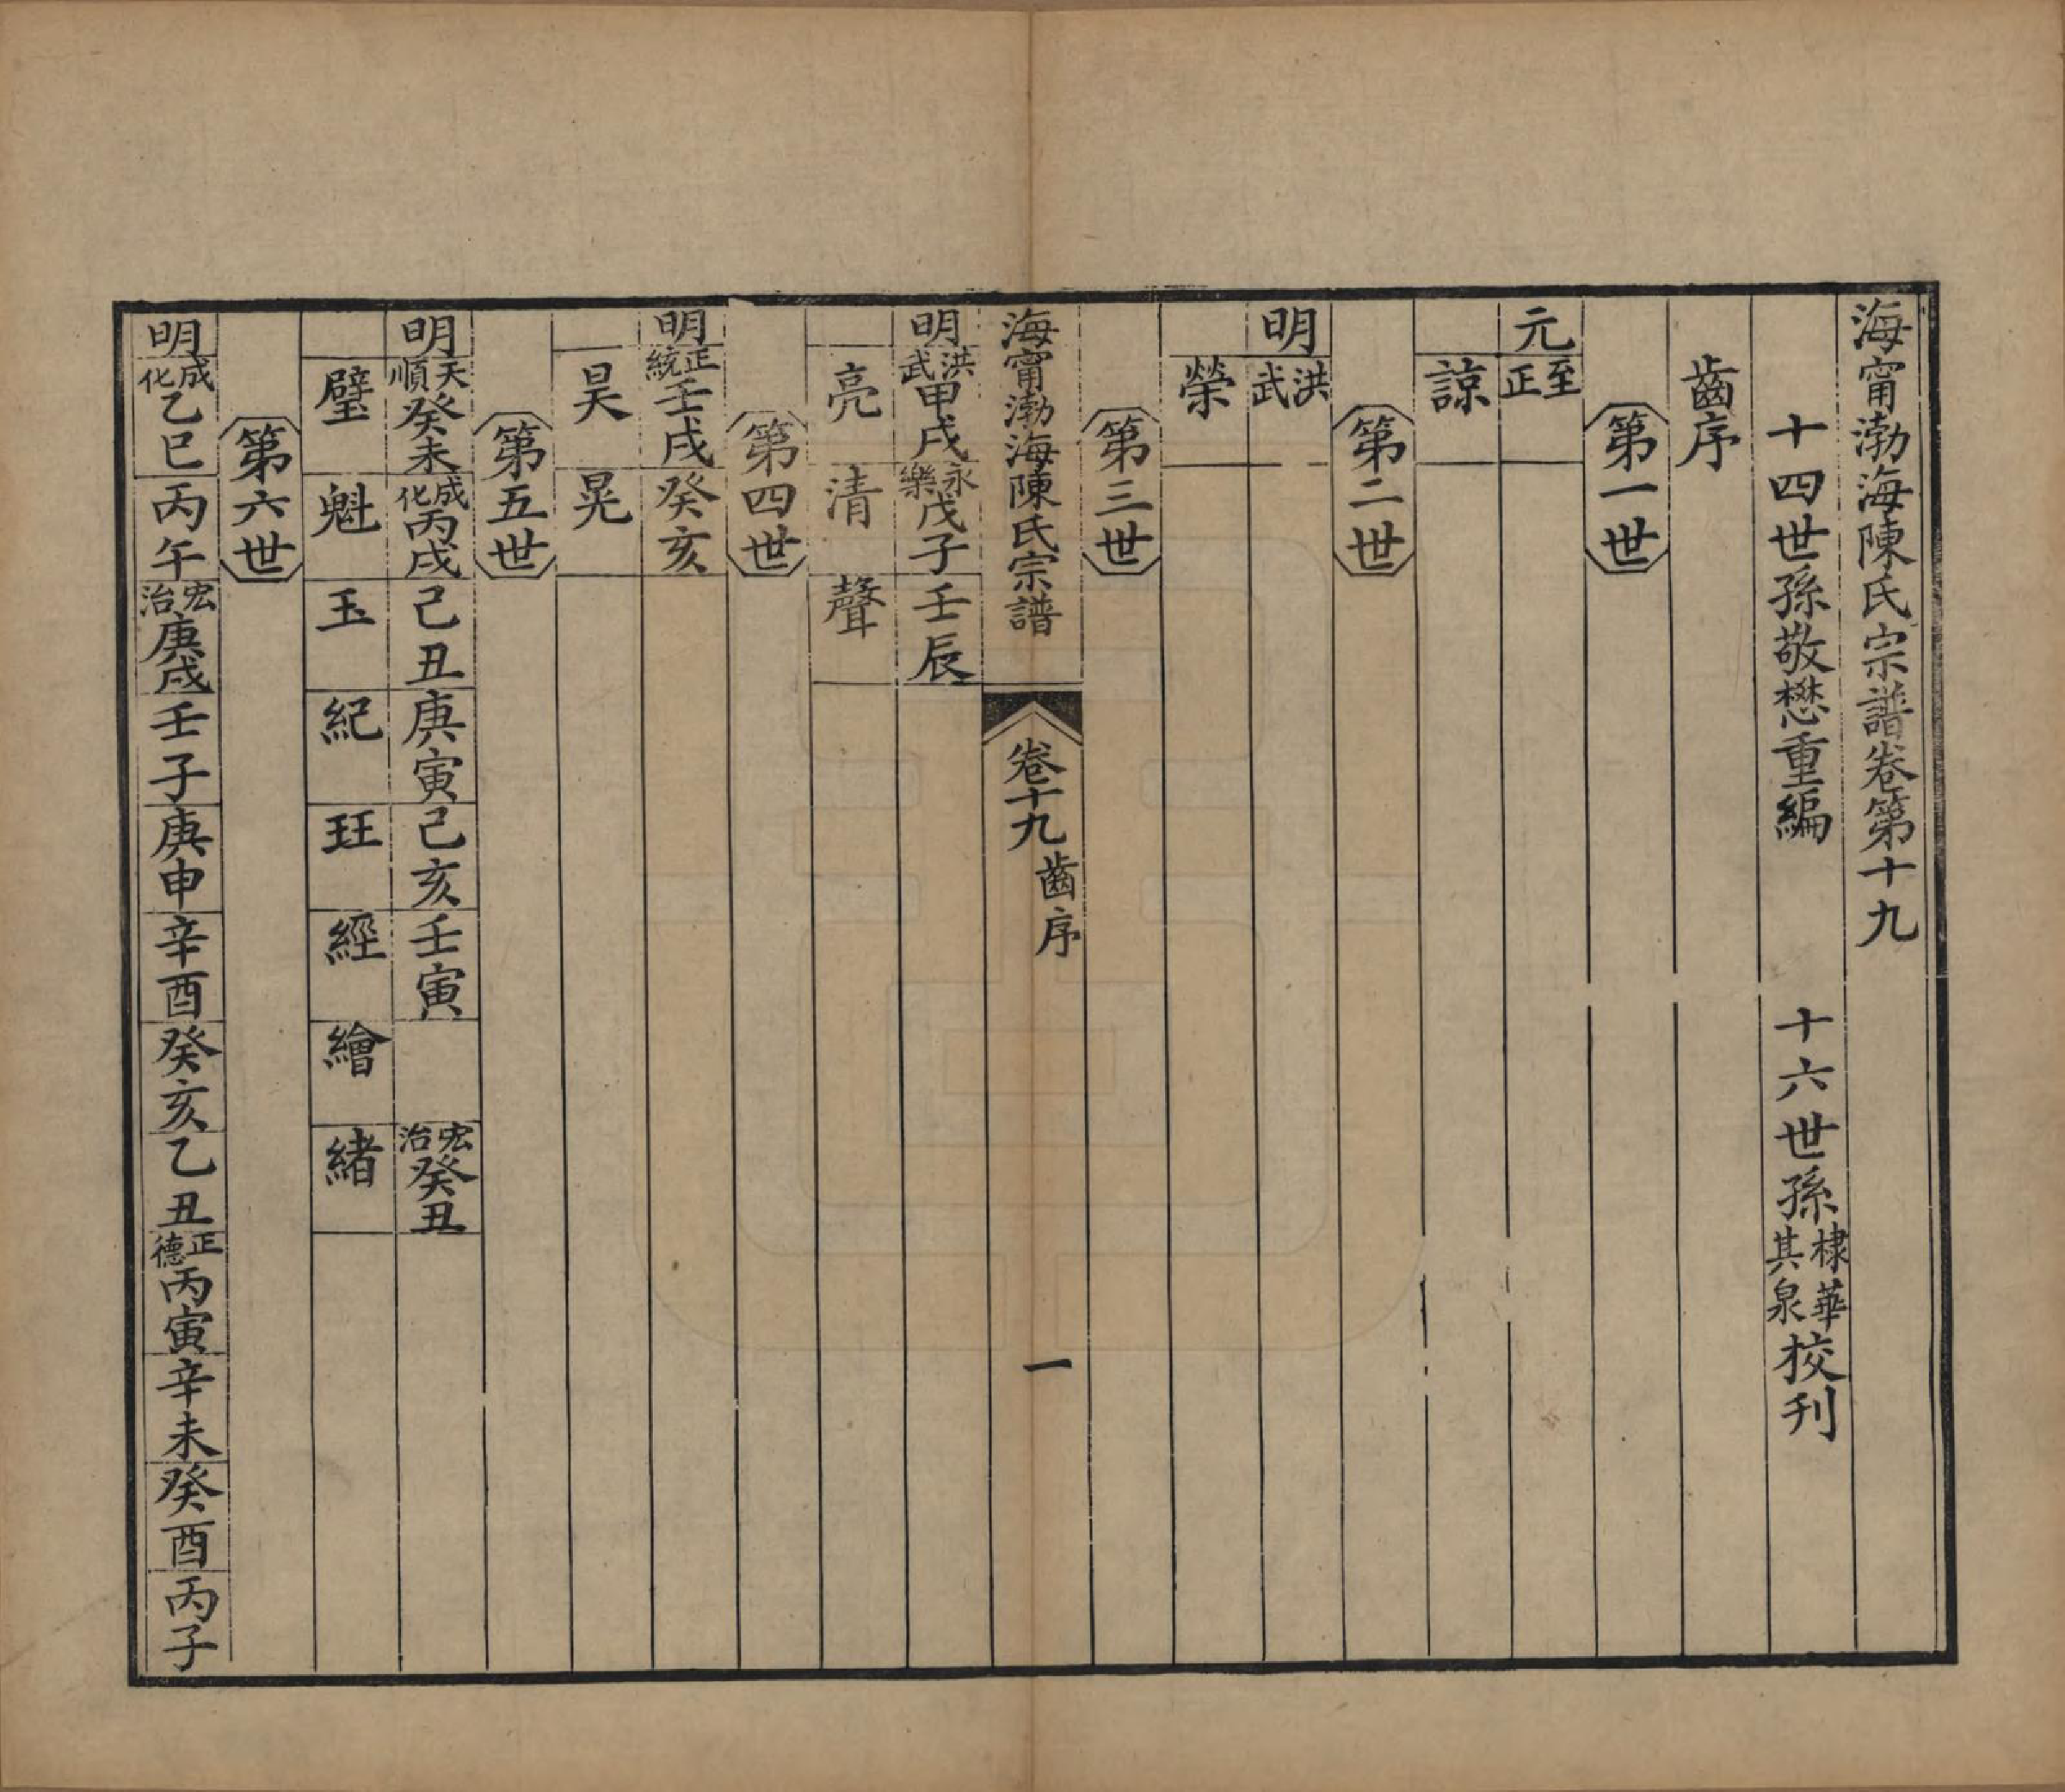 海甯渤海陳氏宗譜卷第十九
十四世孫敬懋重編　十六世孫棣華其泉校刊
齒序
第一世
元 至正
諒
第二世
明 洪武
榮
第三世
海甯渤海陳氏宗譜　卷十九　齒序　一
明 洪武甲戌 永樂戊子 壬辰
亮 清 聲
第四世
明 正統壬戌 癸亥
昊 晃
第五世
明 天順癸未 成化丙戌 己丑 庚寅 己亥 壬寅 宏治癸丑
璧 魁 玉 紀 珏 經 繪 緒
第六世
明 成化乙巳 丙午 宏治庚戌 壬子 庚申 辛酉 癸亥 乙丑 正德丙寅 辛未 癸酉 丙子